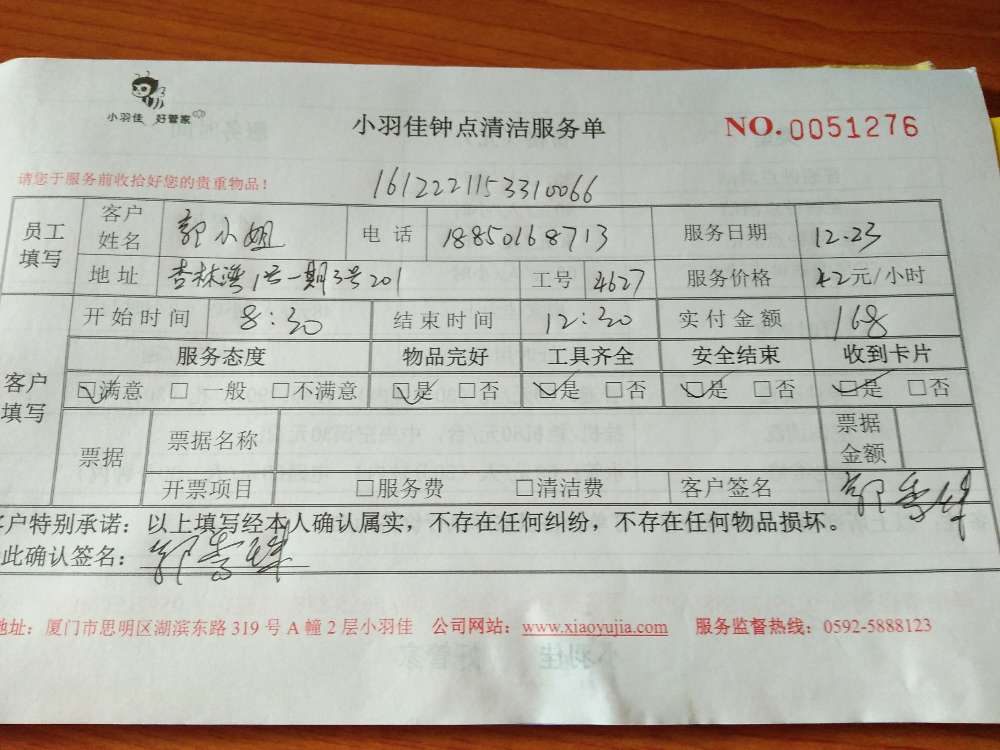 小羽佳 好管家
小羽佳钟点清洁服务单
NO.0051276
请您于服务前收拾好您的贵重物品！
1612221153310066
员工填写 客户姓名 郭小姐 电话 18850168713 服务日期 12.23
地址 杏林湾1号一期3号201 工号 4627 服务价格 42元/小时
客户填写 开始时间 8:30 结束时间 12:30 实付金额 168
服务态度 物品完好 工具齐全 安全结束 收到卡片
☑满意 □一般 □不满意 ☑是 □否 ☑是 □否 ☑是 □否 ☑是 □否
票据 票据名称 票据金额
开票项目 □服务费 □清洁费 客户签名 郭
客户特别承诺：以上填写经本人确认属实，不存在任何纠纷，不存在任何物品损坏。
此确认签名：郭
地址：厦门市思明区湖滨东路 319 号 A 幢 2 层小羽佳 公司网站：www.xiaoyujia.com 服务监督热线：0592-5888123